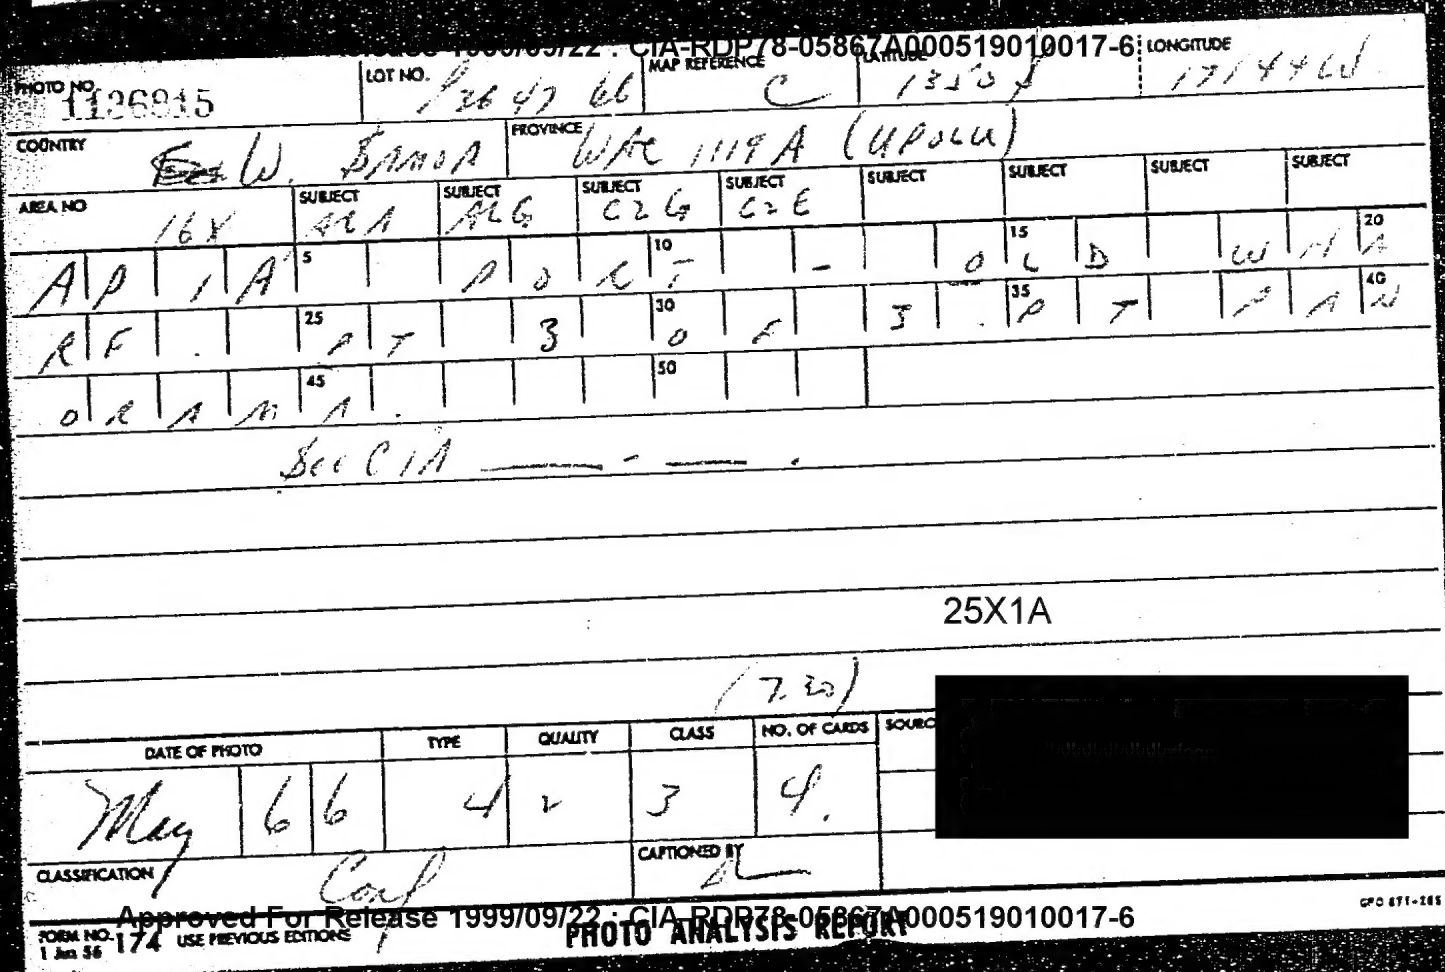 1999/09/22 : CIA-RDP78-05867A000519010017-6
PHOTO NO. 1136915 LOT NO. 13647 66 MAP REFERENCE C LATITUDE 1350 S LONGITUDE 17144 W
COUNTRY W. SAMOA PROVINCE WAC 1119 A (UPOLU)
AREA NO 16X SUBJECT ALA SUBJECT ALG SUBJECT C2G SUBJECT C2E SUBJECT SUBJECT SUBJECT SUBJECT
APIA 5 PORT 10 - OLD 15 WHA 20
RF. PT 25 3 OF 30 3. PT 35 PAN 40
ORAMA. 45 50
See CIA ____ - ____ .
25X1A
(7.30)
DATE OF PHOTO TYPE QUALITY CLASS NO. OF CARDS
May 66 4 2 3 4.
CLASSIFICATION Conf CAPTIONED BY
Approved For Release 1999/09/22 : CIA-RDP78-05867A000519010017-6
FORM NO. 174 USE PREVIOUS EDITIONS PHOTO ANALYSIS REPORT
1 Jun 56